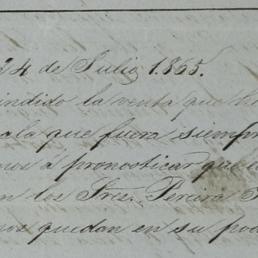 24 de Julio 1865.
indido la venta que
ala que fuera siempre
a pronosticar que
los Sres. Pereira
quedan en su pod